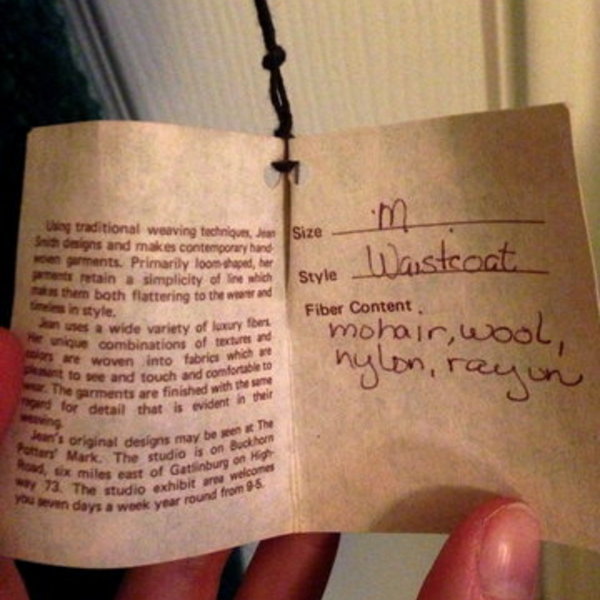 Using traditional weaving techniques, Jean
Smith designs and makes contemporary hand-
woven garments. Primarily loom-shaped, her
garments retain a simplicity of line which
makes them both flattering to the wearer and
timeless in style.
Jean uses a wide variety of luxury fibers.
Her unique combinations of textures and
colors are woven into fabrics which are
pleasant to see and touch and comfortable to
wear. The garments are finished with the same
regard for detail that is evident in their
weaving.
Jean's original designs may be seen at The
Potters' Mark. The studio is on Buckhorn
Road, six miles east of Gatlinburg on High-
way 73. The studio exhibit area welcomes
you seven days a week year round from 9-5.
Size M
Style Waistcoat
Fiber Content
mohair, wool,
nylon, rayon